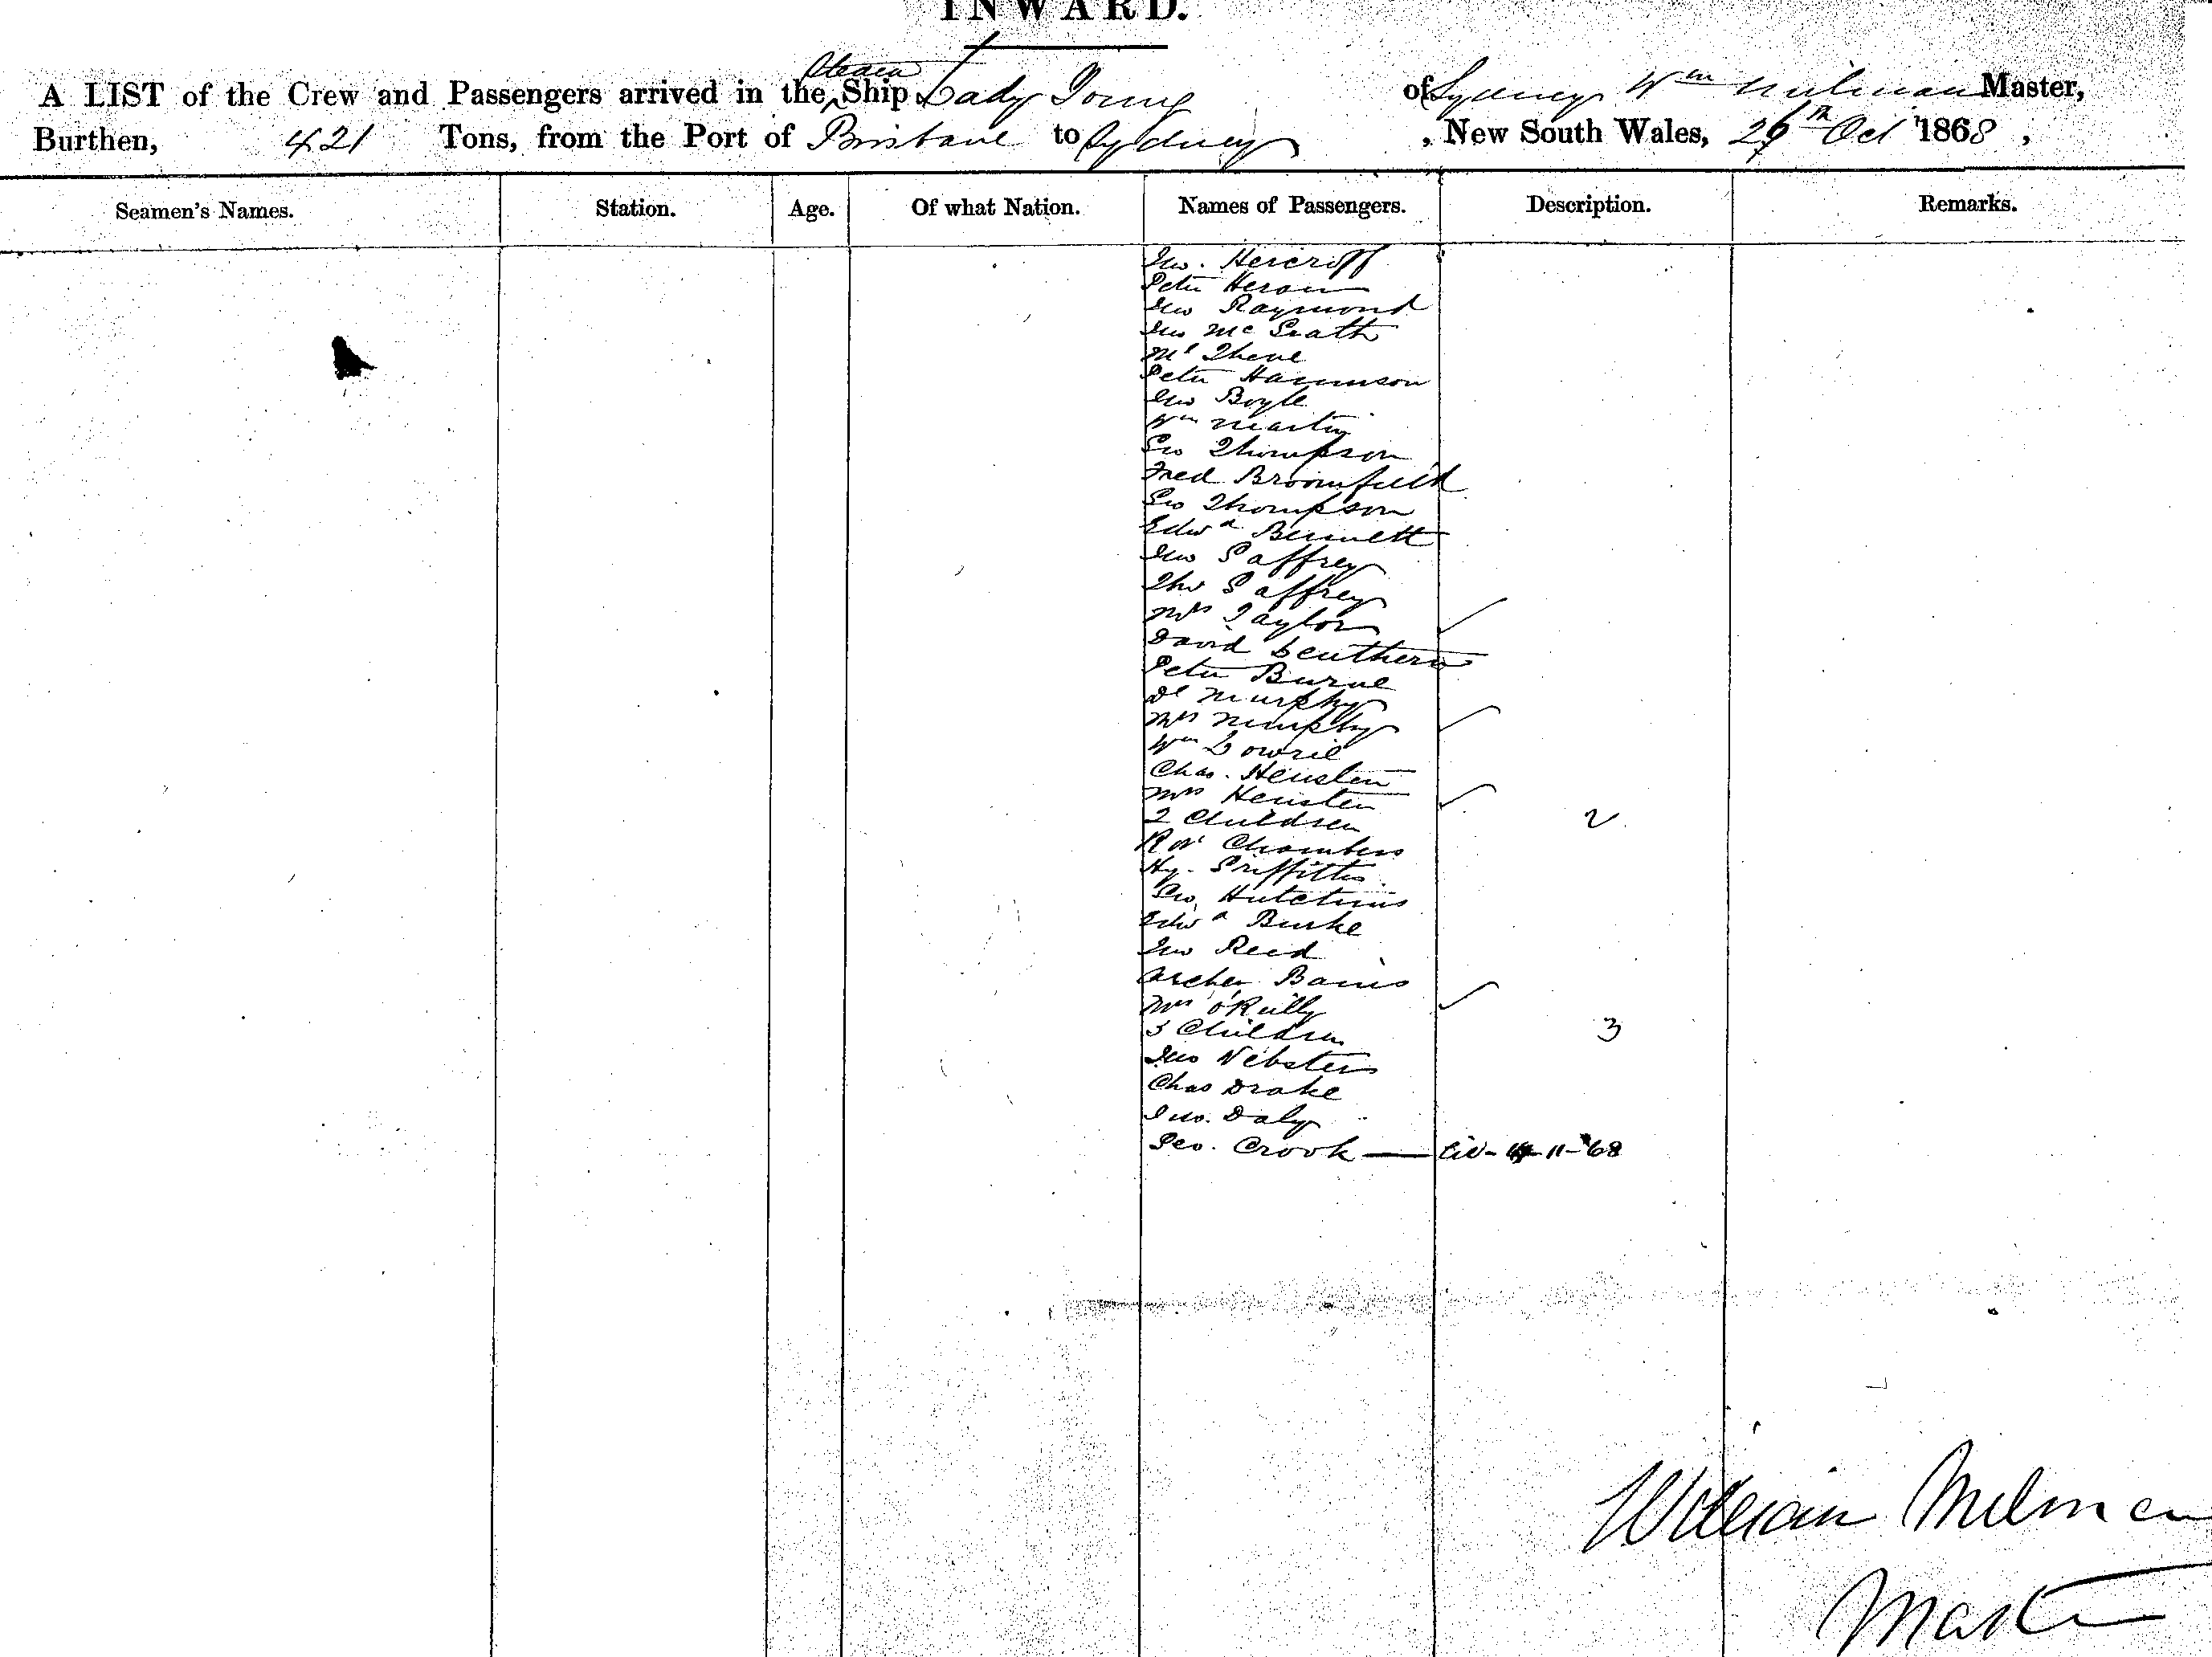 INWARD.
A LIST of the Crew and Passengers arrived in the Steam Ship Lady Young of Sydney Wm Milman Master,
Burthen, 421 Tons, from the Port of Brisbane to Sydney, New South Wales, Oct 1868,
Seamen's Names. Station. Age. Of what Nation. Names of Passengers. Description. Remarks.
Jno.
Peter Heron
Jno Raymond
Jno McGrath
Peter
Jno Boyle
Wm Martin
Geo Thompson
Fred Broomfield
Geo Thompson
Edwd Bennett
Jno Gaffrey
Tho Gaffrey
Mrs Taylor
David
Peter Burne
Dl Murphy
Mrs Murphy
Wm Lowrie
Chas.
Mrs
2 Children 2
Chambers
Hy. Griffiths
Geo Hutchins
Edwd Burke
Jno Reid
Archer
Mrs O'Reilly
3 Children 3
Jno Webster
Chas Drake
Jno. Daly
Geo. Crook — 11-'68
William Milman
Master